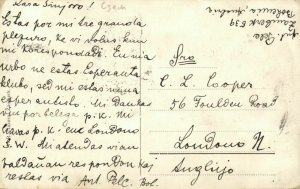 Kara Sinjoro!
Estas por mi tre granda
plezuro, ke vi volus kun
mi korespondadi. En nia
urbo ne estas Esperanta
klubo, sed mi estas nura
esperantisto. Mi dankas
vin por belega p. k. Mi
havas p. k. en London
S.W. Mi atendas vian
baldaŭan respondon kaj
restas via Ant. Pelc.
Ant. Pelc
Bohemio, Austrio
Sro
C. L. Cooper
56 Foulden Road
Londono N.
Anglujo